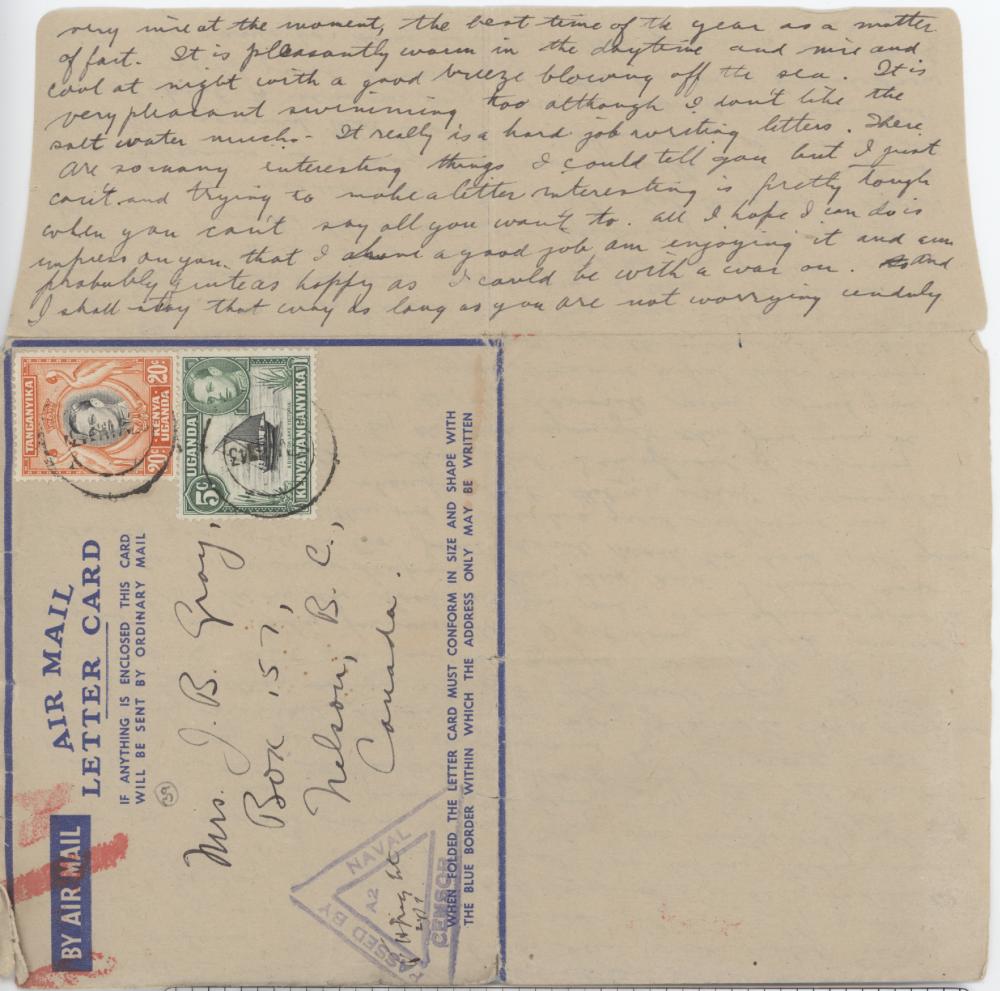 very nice at the moment, the best time of the year as a matter
of fact. It is pleasantly warm in the daytime and nice and
cool at night with a good breeze blowing off the sea. It is
very pleasant swimming too although I don't like the
salt water much. It really is a hard job writing letters. There
are so many interesting things I could tell you but I just
can't and trying to make a letter interesting is pretty tough
when you can't say all you want to. All I hope I can do is
impress on you that I have a good job, am enjoying it and am
probably quite as happy as I could be with a war on. And
I shall stay that way as long as you are not worrying unduly
TANGANYIKA
KENYA
UGANDA
20c
20c
UGANDA
KENYA TANGANYIKA
5c
AIR MAIL
LETTER CARD
IF ANYTHING IS ENCLOSED THIS CARD
WILL BE SENT BY ORDINARY MAIL
BY AIR MAIL
39
Mrs. J. B. Gray,
Box 157,
Nelson, B. C.,
Canada.
PASSED BY
NAVAL
CENSOR
A2
WHEN FOLDED THE LETTER CARD MUST CONFORM IN SIZE AND SHAPE WITH
THE BLUE BORDER WITHIN WHICH THE ADDRESS ONLY MAY BE WRITTEN